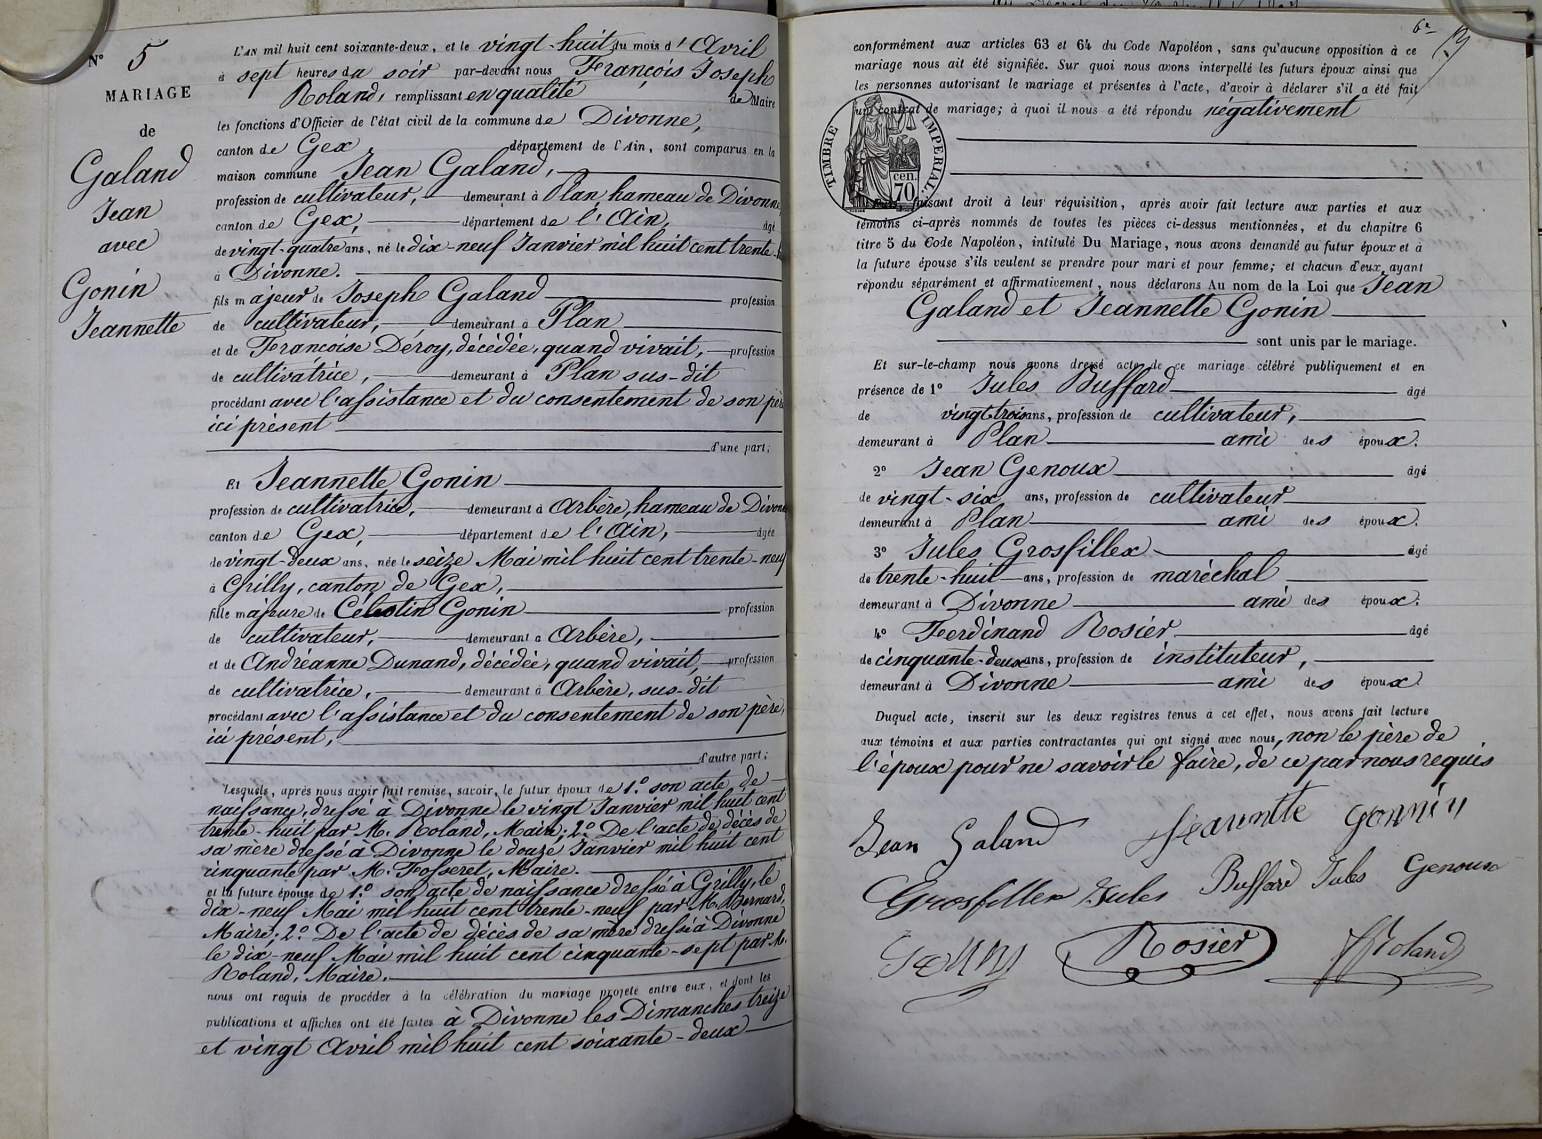 N° 5
MARIAGE
de
Galand
Jean
avec
Gonin
Jeannette
L'AN mil huit cent soixante-deux, et le vingt-huit du mois d'Avril
à sept heures du soir par-devant nous François Joseph
Roland, remplissant en qualité de Maire
les fonctions d'Officier de l'état civil de la commune de Divonne,
canton de Gex département de l'Ain, sont comparus en la
maison commune Jean Galand,
profession de cultivateur, demeurant à Plan, hameau de Divonne
canton de Gex, département de l'Ain, âgé
de vingt-quatre ans, né le dix-neuf Janvier mil huit cent trente-
à Divonne.
fils majeur de Joseph Galand profession
de cultivateur, demeurant à Plan
et de Françoise Deroy, décédée, quand vivait, profession
de cultivatrice, demeurant à Plan sus-dit
procédant avec l'assistance et du consentement de son père
ici présent
d'une part;
Et Jeannette Gonin
profession de cultivatrice, demeurant à Arbère, hameau de Divonne
canton de Gex, département de l'Ain, âgée
de vingt-deux ans, née le seize Mai mil huit cent trente-neuf
à Grilly, canton de Gex,
fille majeure de Celestin Gonin profession
de cultivateur, demeurant à Arbère,
et de Andréanne Dunand, décédée, quand vivait, profession
de cultivatrice, demeurant à Arbère, sus-dit
procédant avec l'assistance et du consentement de son père,
ici présent,
d'autre part;
Lesquels, après nous avoir fait remise, savoir, le futur époux de 1° son acte de
naissance, dressé à Divonne le vingt Janvier mil huit cent
trente-huit par M. Roland, Maire; 2° De l'acte de décès de
sa mère dressé à Divonne le douze Janvier mil huit cent
cinquante par M. Fosseret, Maire.
et la future épouse de 1° son acte de naissance dressé à Grilly, le
dix-neuf Mai mil huit cent trente-neuf par M. Bernard,
Maire; 2° De l'acte de décès de sa mère dressé à Divonne
le dix-neuf Mai mil huit cent cinquante-sept par M.
Roland, Maire.
nous ont requis de procéder à la célébration du mariage projeté entre eux, et dont les
publications et affiches ont été faites à Divonne les Dimanches treize
et vingt Avril mil huit cent soixante-deux
conformément aux articles 63 et 64 du Code Napoléon, sans qu'aucune opposition à ce
mariage nous ait été signifiée. Sur quoi nous avons interpellé les futurs époux ainsi que
les personnes autorisant le mariage et présentes à l'acte, d'avoir à déclarer s'il a été fait
un contrat de mariage; à quoi il nous a été répondu négativement
TIMBRE IMPERIAL
cen.
70
faisant droit à leur réquisition, après avoir fait lecture aux parties et aux
témoins ci-après nommés de toutes les pièces ci-dessus mentionnées, et du chapitre 6
titre 5 du Code Napoléon, intitulé Du Mariage, nous avons demandé au futur époux et à
la future épouse s'ils veulent se prendre pour mari et pour femme; et chacun d'eux ayant
répondu séparément et affirmativement, nous déclarons Au nom de la Loi que Jean
Galand et Jeannette Gonin
sont unis par le mariage.
Et sur-le-champ nous avons dressé acte de ce mariage célébré publiquement et en
présence de 1° Jules Buffard âgé
de vingt-trois ans, profession de cultivateur,
demeurant à Plan ami des époux.
2° Jean Genoux âgé
de vingt-six ans, profession de cultivateur
demeurant à Plan ami des époux.
3° Jules Grosfillex âgé
de trente-huit ans, profession de maréchal
demeurant à Divonne ami des époux.
4° Ferdinand Rosier âgé
de cinquante-deux ans, profession de instituteur,
demeurant à Divonne ami des époux.
Duquel acte, inscrit sur les deux registres tenus à cet effet, nous avons fait lecture
aux témoins et aux parties contractantes qui ont signé avec nous, non le père de
l'époux pour ne savoir le faire, de ce par nous requis
Jean Galand Jeannette Gonnin
Grosfillex Jules Buffard Jules Genoux
Jean Rosier Roland